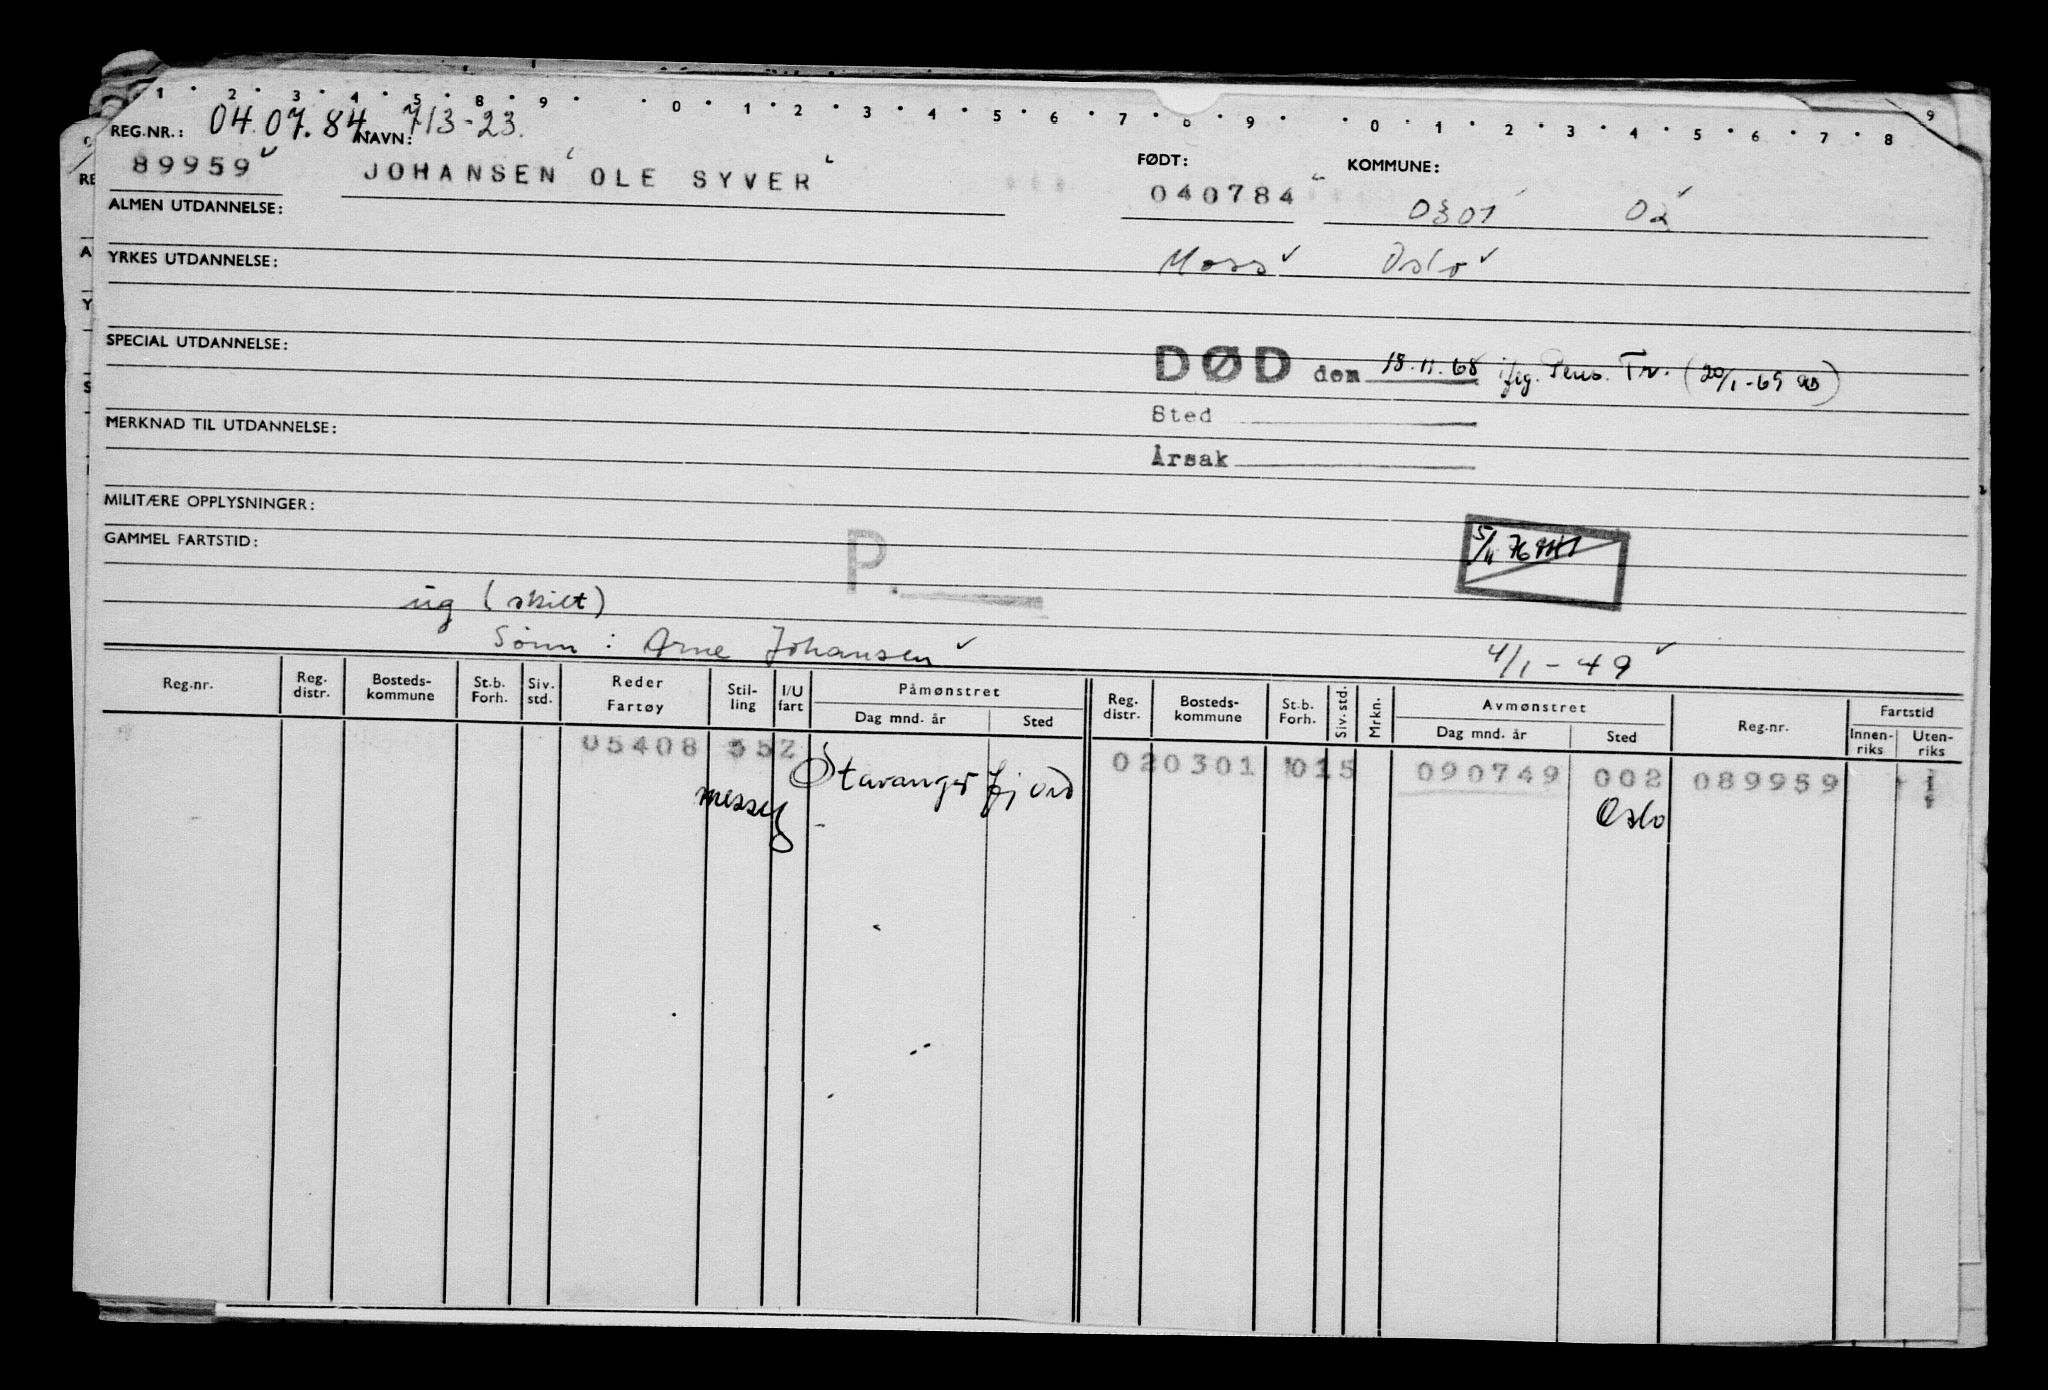 1 · 2 · 3 · 4 · 5 · 8 · 9 · · 0 · 1 · 2 · 3 · 4 · 5 · 6 · 7 · 8 · 9 · · 0 · 1 · 2 · 3 · 4 · 5 · 6 · 7 · 8 9
REG.NR.: 04.07.84 NAVN: 713-23.
89959 JOHANSEN OLE SYVER FØDT: 040784 KOMMUNE: 0301 02
ALMEN UTDANNELSE:
Moss Oslo
YRKES UTDANNELSE:
SPECIAL UTDANNELSE:
DØD den 18.11.68 ifg. Pens. Tr. (20/1-69)
Sted
MERKNAD TIL UTDANNELSE:
Årsak
MILITÆRE OPPLYSNINGER:
5/11 76
GAMMEL FARTSTID:
P.
ug (skilt)
Sønn: Arne Johansen 4/1-49
Reg.nr. Reg. distr. Bosteds-kommune St.b. Forh. Siv. std. Reder Fartøy Stil-ling I/U fart Påmønstret Dag mnd. år Sted Reg. distr. Bosteds-kommune St.b. Forh. Siv. std. Mrkn. Avmønstret Dag mnd. år Sted Reg.nr. Fartstid Innen-riks Uten-riks
05408 552 Stavangerfjord 020301 015 090749 002 089959
messg Oslo